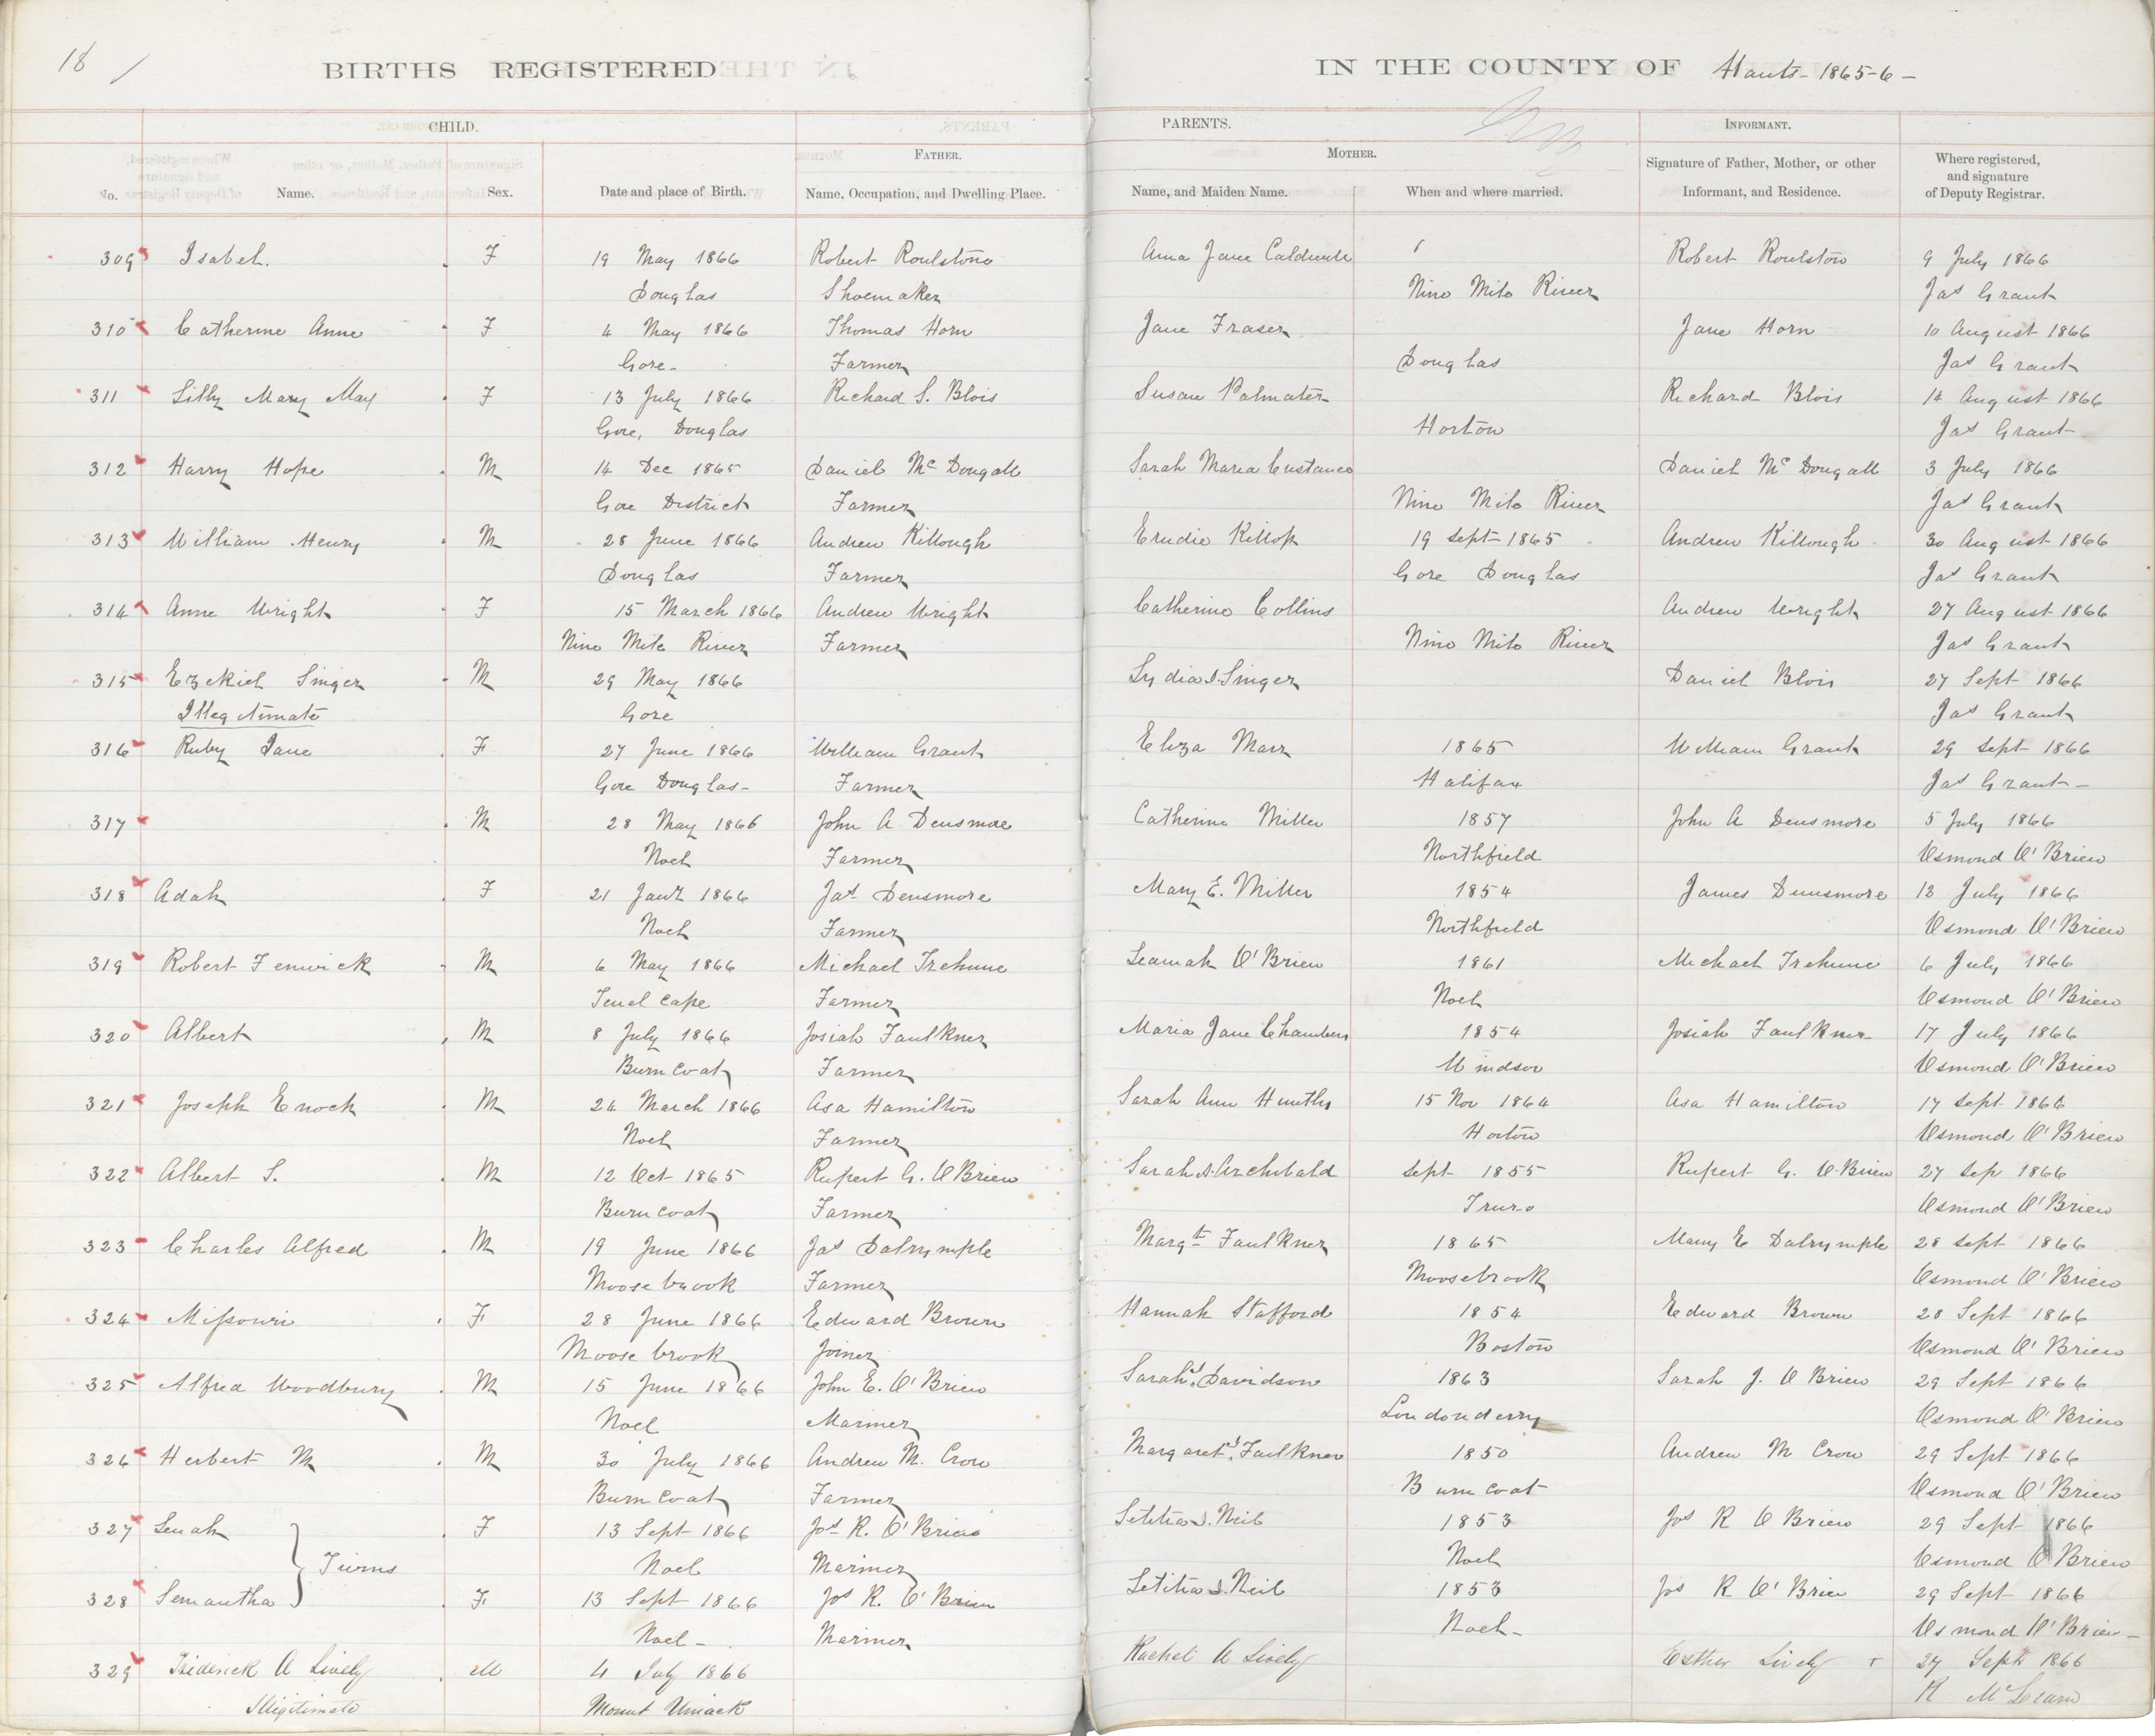 18 /
BIRTHS REGISTERED IN THE COUNTY OF Hants - 1865-6 -
CHILD. PARENTS. INFORMANT.
FATHER. MOTHER.
No. Name. Sex. Date and place of Birth. Name, Occupation, and Dwelling Place. Name, and Maiden Name. When and where married. Signature of Father, Mother, or other Informant, and Residence. Where registered, and signature of Deputy Registrar.
309 Isabel. F 19 May 1866 Robert Roulston Anna Jane Caldwell Robert Roulston 9 July 1866
Douglas Shoemaker Nine Mile River Jas Grant
310 Catherine Anne F 4 May 1866 Thomas Horn Jane Fraser Jane Horn 10 August 1866
Gore - Farmer Douglas Jas Grant
311 Lilly Mary May F 13 July 1866 Richard S. Blois Susan Palmater Richard Blois 14 August 1866
Gore, Douglas Horton Jas Grant
312 Harry Hope M 14 Dec 1865 Daniel McDougall Sarah Maria Custance Daniel McDougall 3 July 1866
Gore District Farmer Nine Mile River Jas Grant
313 William Henry M 28 June 1866 Andrew Killough Erudie Killop 19 Sept 1865 Andrew Killough 30 August 1866
Douglas Farmer Gore Douglas Jas Grant
314 Anne Wright F 15 March 1866 Andrew Wright Catherine Collins Andrew Wright 27 August 1866
Nine Mile River Farmer Nine Mile River Jas Grant
315 Ezekiel Singer M 29 May 1866 Lydia S. Singer Daniel Blois 27 Sept 1866
Illegitimate Gore Jas Grant
316 Ruby Jane F 27 June 1866 William Grant Eliza Marr 1865 William Grant 29 Sept 1866
Gore Douglas - Farmer Halifax Jas Grant -
317 M 28 May 1866 John A Densmore Catherine Miller 1857 John A Densmore 5 July 1866
Noel Farmer Northfield Osmond O'Brien
318 Adah F 21 Jany 1866 Jas Densmore Mary E. Miller 1854 James Densmore 13 July 1866
Noel Farmer Northfield Osmond O'Brien
319 Robert Fenwick M 6 May 1866 Michael Trehune Leamah O'Brien 1861 Michael Trehune 6 July 1866
Tenel Cape Farmer Noel Osmond O'Brien
320 Albert M 8 July 1866 Josiah Faulkner Maria Jane Chambers 1854 Josiah Faulkner 17 July 1866
Burncoat Farmer Windsor Osmond O'Brien
321 Joseph Enoch M 24 March 1866 Asa Hamilton Sarah Ann 15 Nov 1864 Asa Hamilton 17 Sept 1866
Noel Farmer Horton Osmond O'Brien
322 Albert S. M 12 Oct 1865 Rupert G. O'Brien Sarah A. Archibald Sept 1855 Rupert G. O'Brien 27 Sep 1866
Burncoat Farmer Truro Osmond O'Brien
323 Charles Alfred M 19 June 1866 Jas Dalrymple Margt Faulkner 1865 Mary E Dalrymple 28 Sept 1866
Moosebrook Farmer Moosebrook Osmond O'Brien
324 Missouri F 28 June 1866 Edward Brown Hannah Stafford 1854 Edward Brown 28 Sept 1866
Moosebrook Joiner Boston Osmond O'Brien
325 Alfred Woodbury M 15 June 1866 John E. O'Brien Sarah J. Davidson 1863 Sarah J. O'Brien 29 Sept 1866
Noel Mariner Londonderry Osmond O'Brien
326 Herbert M M 30 July 1866 Andrew M. Crow Margaret J. Faulkner 1850 Andrew M Crow 29 Sept 1866
Burncoat Farmer Burncoat Osmond O'Brien
327 Lenah F 13 Sept 1866 Jos R. O'Brien Letitia S. Neil 1853 Jos R O'Brien 29 Sept 1866
Twins Noel Mariner Noel Osmond O'Brien
328 Semantha F 13 Sept 1866 Jos R. O'Brien Letitia S. Neil 1853 Jos R O'Brien 29 Sept 1866
Noel - Mariner Noel - Osmond O'Brien -
329 Friderick A Lively M 4 July 1866 Rachel A Lively Esther Lively + 27 Sept 1866
Illigitimate Mount Uniack R McLearn